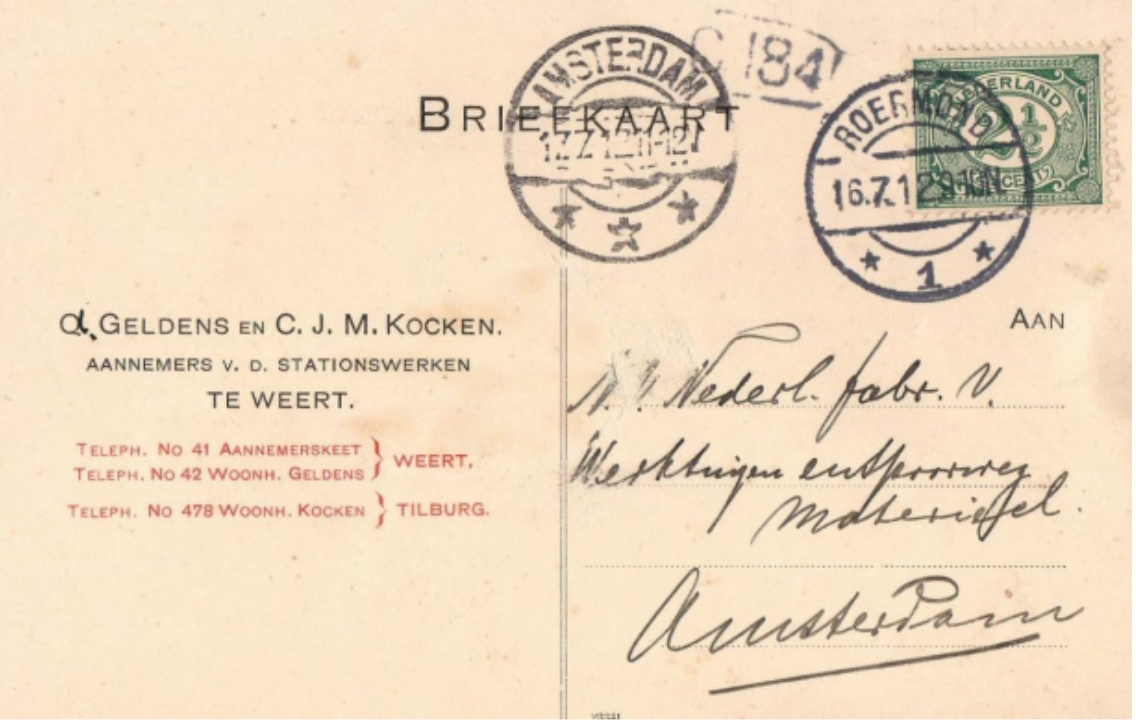 C 184
BRIEFKAART
AMSTERDAM
17.7.12 11-12V
NEDERLAND
2½
CENT
ROERMOND
16.7.12 9-10N.
1
GELDENS EN C. J. M. KOCKEN.
AANNEMERS V. D. STATIONSWERKEN
TE WEERT.
TELEPH. NO 41 AANNEMERSKEET
TELEPH. NO 42 WOONH. GELDENS } WEERT,
TELEPH. NO 478 WOONH. KOCKEN } TILBURG.
AAN
N. V. Nederl. fabr. V.
Werktuigen en Spoorweg
Materieel.
Amsterdam